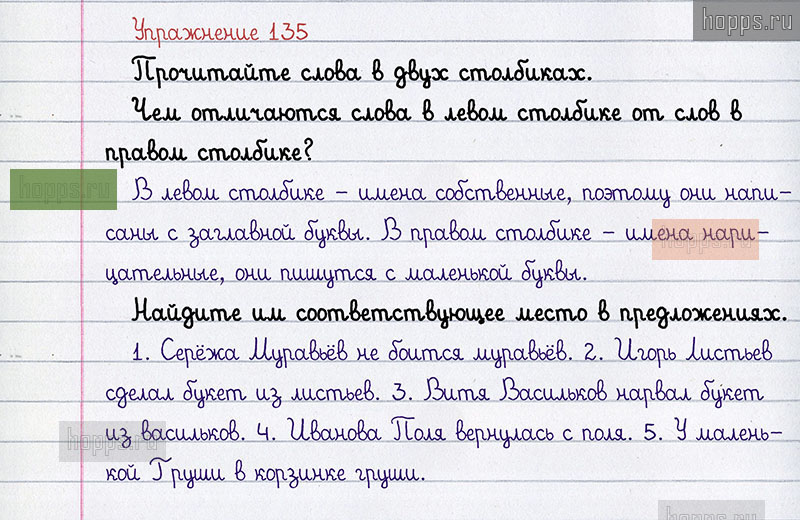 hopps.ru
Упражнение 135
Прочитайте слова в двух столбиках.
Чем отличаются слова в левом столбике от слов в
правом столбике?
hopps.ru
В левом столбике – имена собственные, поэтому они напи–
саны с заглавной буквы. В правом столбике – имена нари–
hopps.ru
цательные, они пишутся с маленькой буквы.
Найдите им соответствующее место в предложениях.
1. Серёжа Муравьёв не боится муравьёв. 2. Игорь Листьев
сделал букет из листьев. 3. Витя Васильков нарвал букет
из васильков. 4. Иванова Поля вернулась с поля. 5. У малень–
hopps.ru
кой Груши в корзинке груши.
hopps.ru